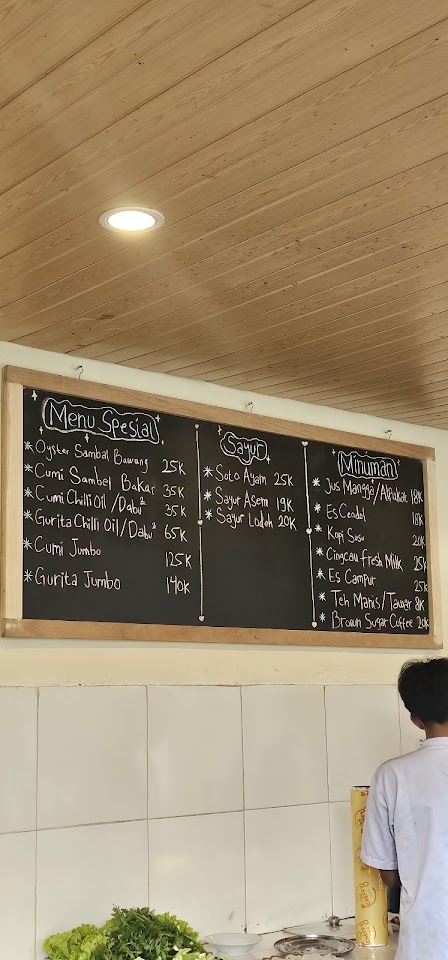 Menu Spesial
* Oyster Sambal Bawang 25K
* Cumi Sambel Bakar 35K
* Cumi Chilli Oil /Dabu² 35K
* Gurita Chilli Oil /Dabu² 65K
* Cumi Jumbo 125K
* Gurita Jumbo 140K
Sayur
* Soto Ayam 25K
* Sayur Asem 19K
* Sayur Lodeh 20K
Minuman
* Jus Mangga/Alpukat 18K
* Es Cendol 18K
* Kopi Susu 20K
* Cingcau Fresh Milk 25K
* Es Campur 25K
* Teh Manis/Tawar 8K
* Brown Sugar Coffee 20K